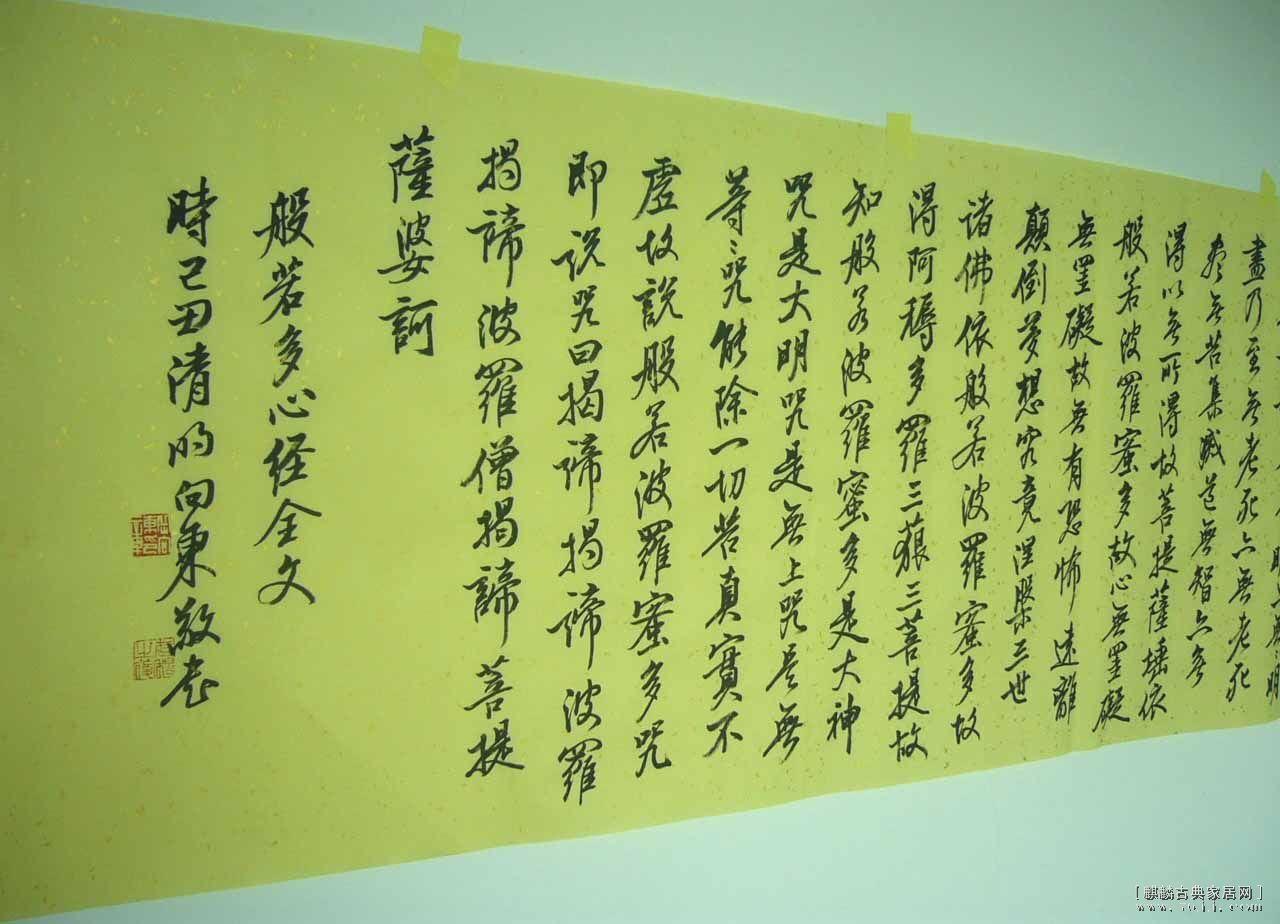 盡乃至無老死亦無老死
盡無苦集滅道無智亦無
得以無所得故菩提薩埵依
般若波羅蜜多故心無罣礙
無罣礙故無有恐怖遠離
顛倒夢想究竟涅槃三世
諸佛依般若波羅蜜多故
得阿耨多羅三藐三菩提故
知般若波羅蜜多是大神
咒是大明咒是無上咒是無
等〻咒能除一切苦真實不
虛故說般若波羅蜜多咒
即說咒曰揭諦揭諦波羅
揭諦波羅僧揭諦菩提
薩婆訶
般若多心经全文
時己丑清明向東敬书
[麒麟古典家居网]